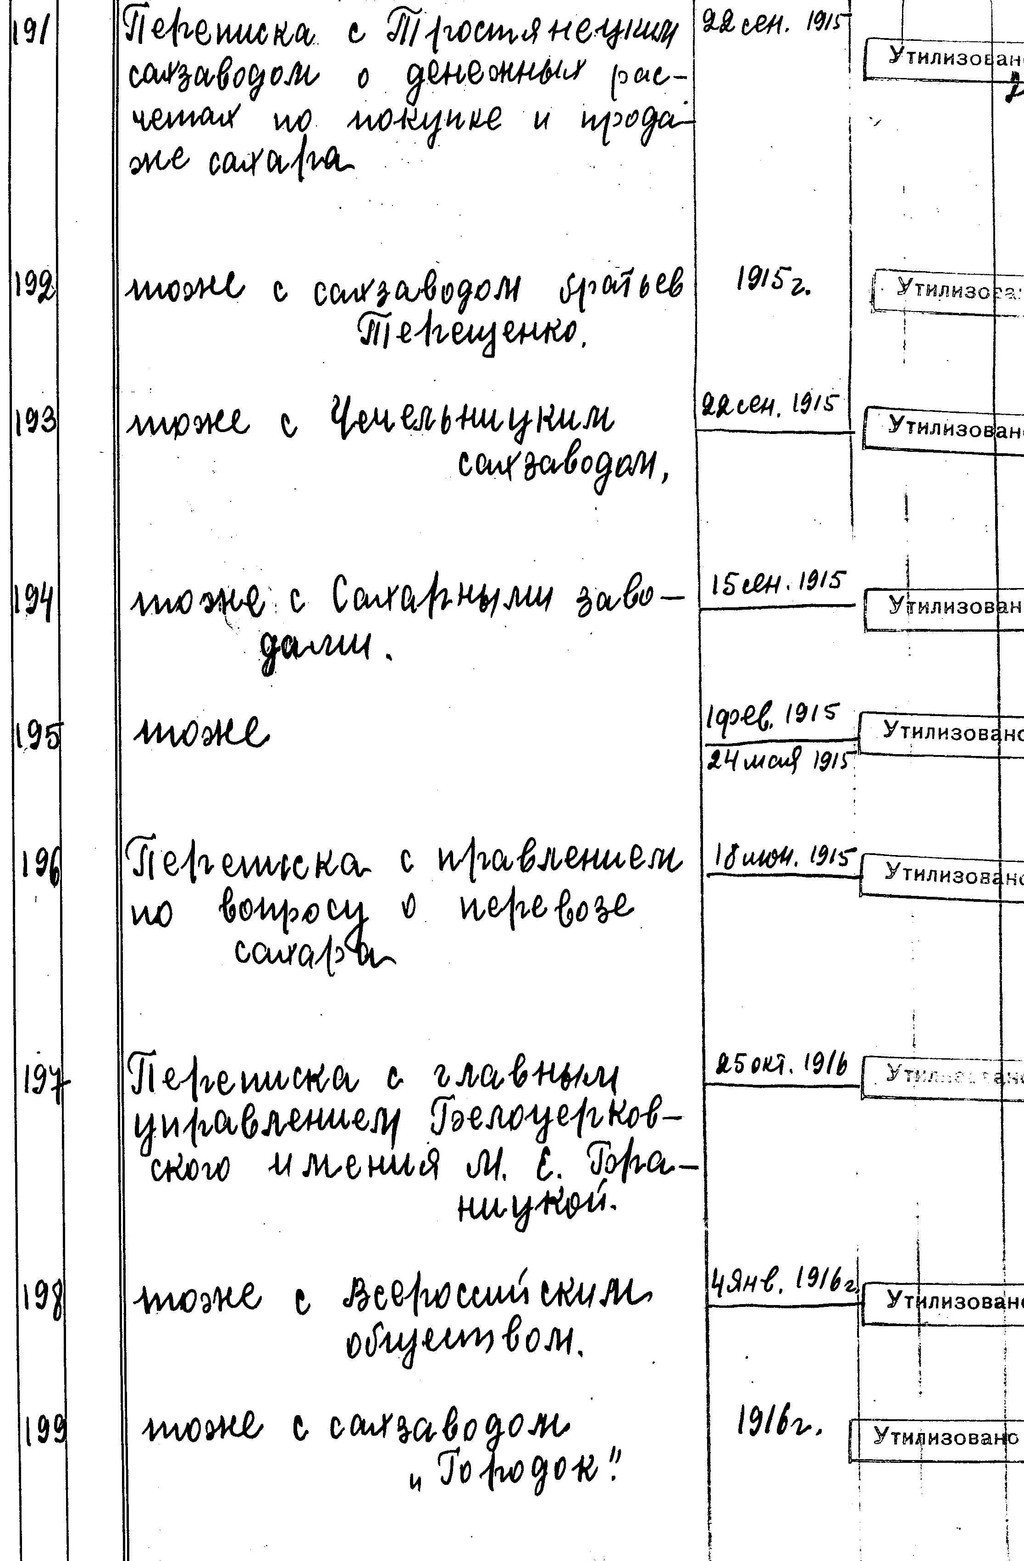 191 Переписка с Тростянецким 22 сен. 1915
сахзаводом о денежных рас- Утилизован
четах по покупке и прода-
же сахара
192 тоже с сахзаводом братьев 1915г. Утилизова
Терещенко.
193 тоже с Чечельницким 22 сен. 1915 Утилизован
сахзаводом,
194 тоже с Сахарными заво- 15 сен. 1915 Утилизован
дами.
195 тоже 1 фев. 1915 Утилизовано
24 мая 1915
196 Переписка с правлением 18 июн. 1915 Утилизовано
по вопросу о перевозе
сахара
197 Переписка с главным 25 окт. 1916 Утилизовано
управлением Белоцерков-
ского имения М. Е. Бра-
ницкой.
198 тоже с Всероссийским 4 янв. 1916г. Утилизовано
обществом.
199 тоже с сахзаводом 1916г. Утилизовано
„Городок".